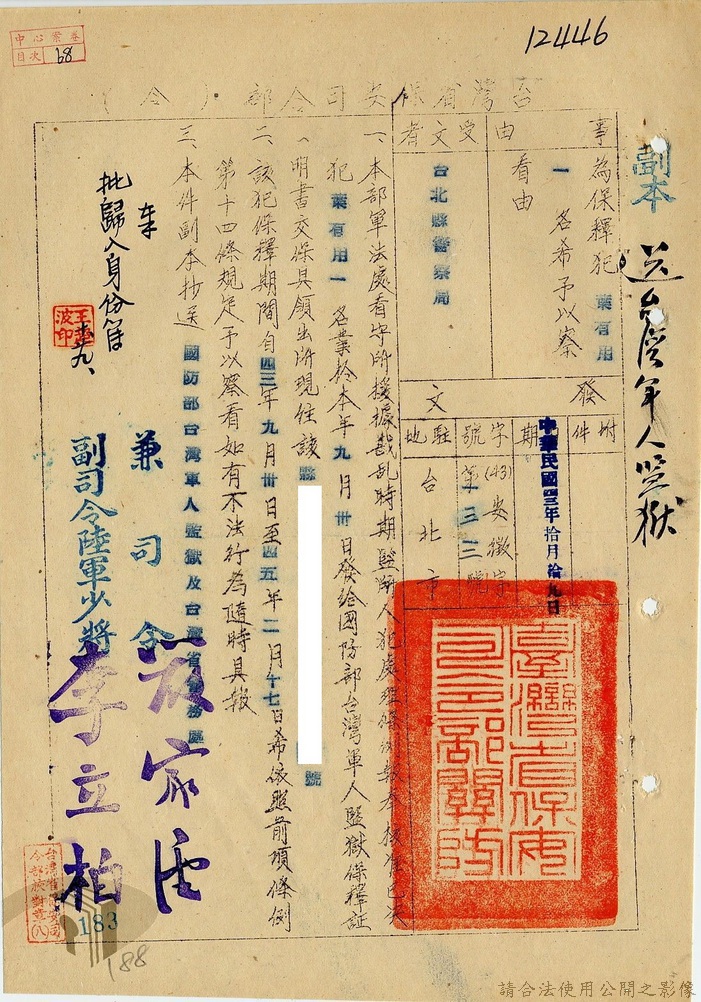 12446
中心案卷
目次 68
台灣省保安司令部(令)
副本
送台灣軍人監獄
事由
為保釋犯葉有用
一名希予以察
看由
受文者
台北縣警察局
發文
附件
日期
中華民國四三年拾月拾九日
字號
(43)安徵字
第三三號
駐地
台北市
一、本部軍法處看守所援據戡亂時期監所人犯處理條例報奉核准已決
犯葉有用一名業於本年九月卅日發給國防部台灣軍人監獄保釋証
明書交保具領出所現住該縣
號
二、該犯保釋期間自四三年九月卅日至四五年二月十七日希依照前項條例
第十四條規定予以察看如有不法行為隨時具報
三、本件副本抄送國防部台灣軍人監獄及台灣省警務處
兼司令
副司令陸軍少將李立柏
批歸入身份簿
臺灣省保安司令部關防
183
188
請合法使用公開之影像